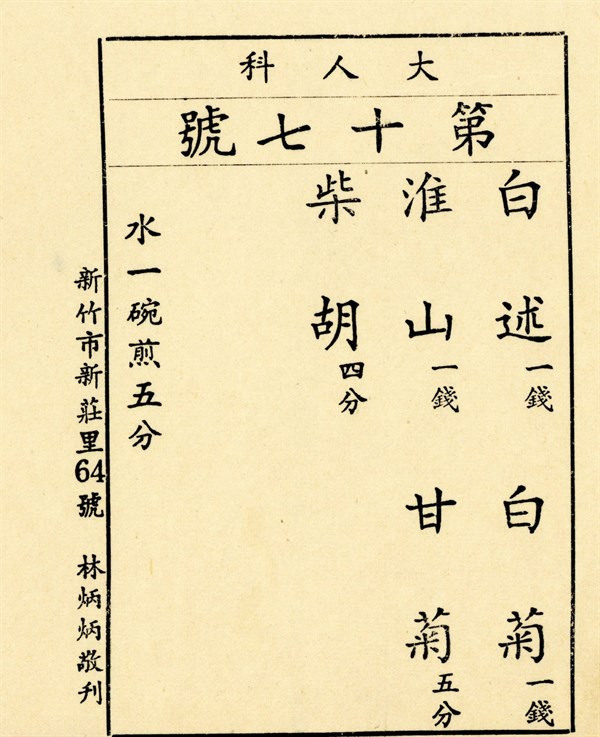 大人科
第十七號
白述一錢 白菊一錢
淮山一錢 甘菊五分
柴胡四分
水一碗煎五分
新竹市新莊里64號 林炳炳敬刊